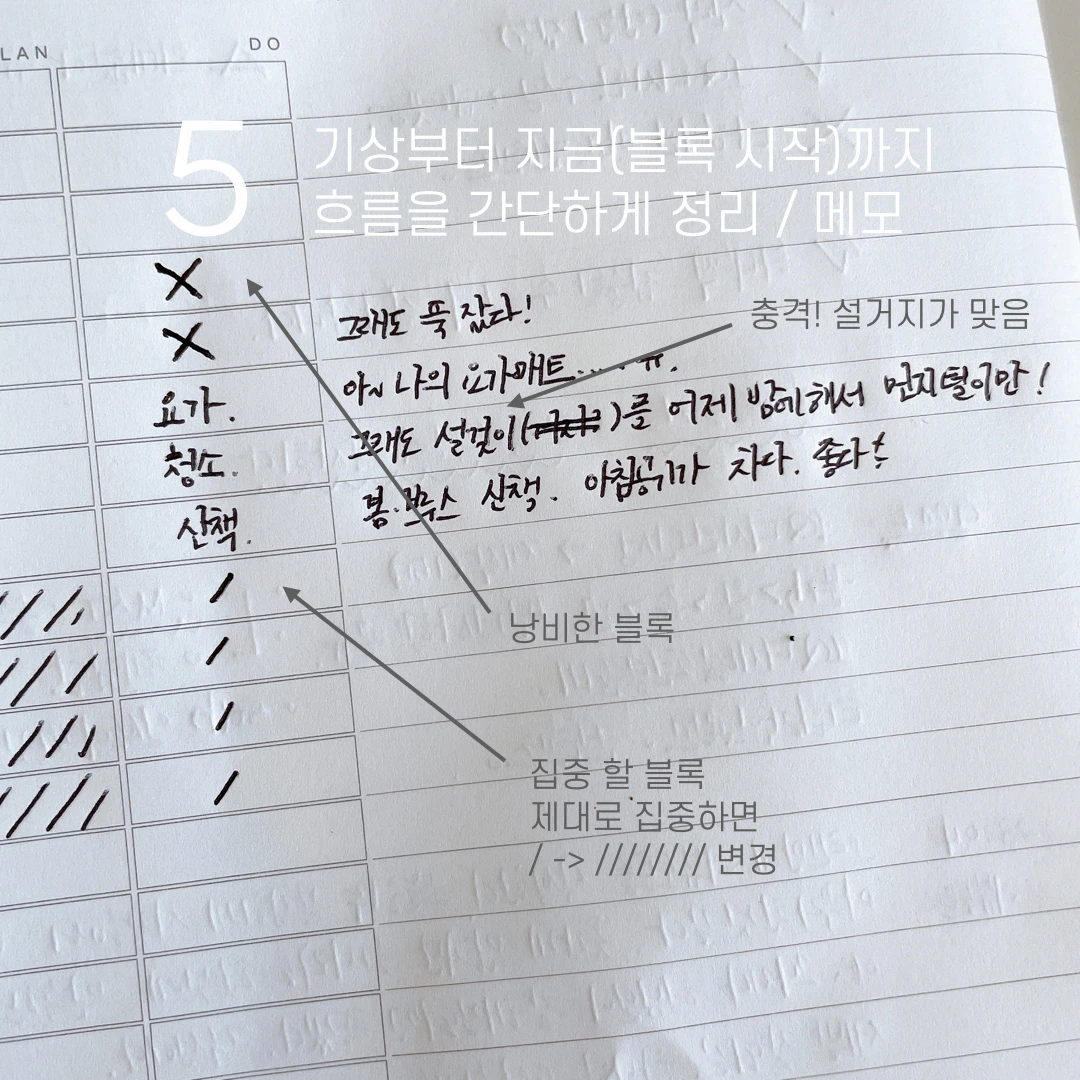 LAN DO
5
기상부터 지금(블록 시작)까지
흐름을 간단하게 정리 / 메모
X
X
요가.
청소.
산책.
그래도 푹 잤다!
아~ 나의 요가매트..... ㅠ.
그래도 설겆이( )를 어제 밤에 해서 먼지털이만!
봄.보무스 산책. 아침공기가 차다. 좋다!
충격! 설거지가 맞음
낭비한 블록
///.
///
///
////
/
/
/
/
집중 할 블록
제대로 집중하면
/ -> //////// 변경